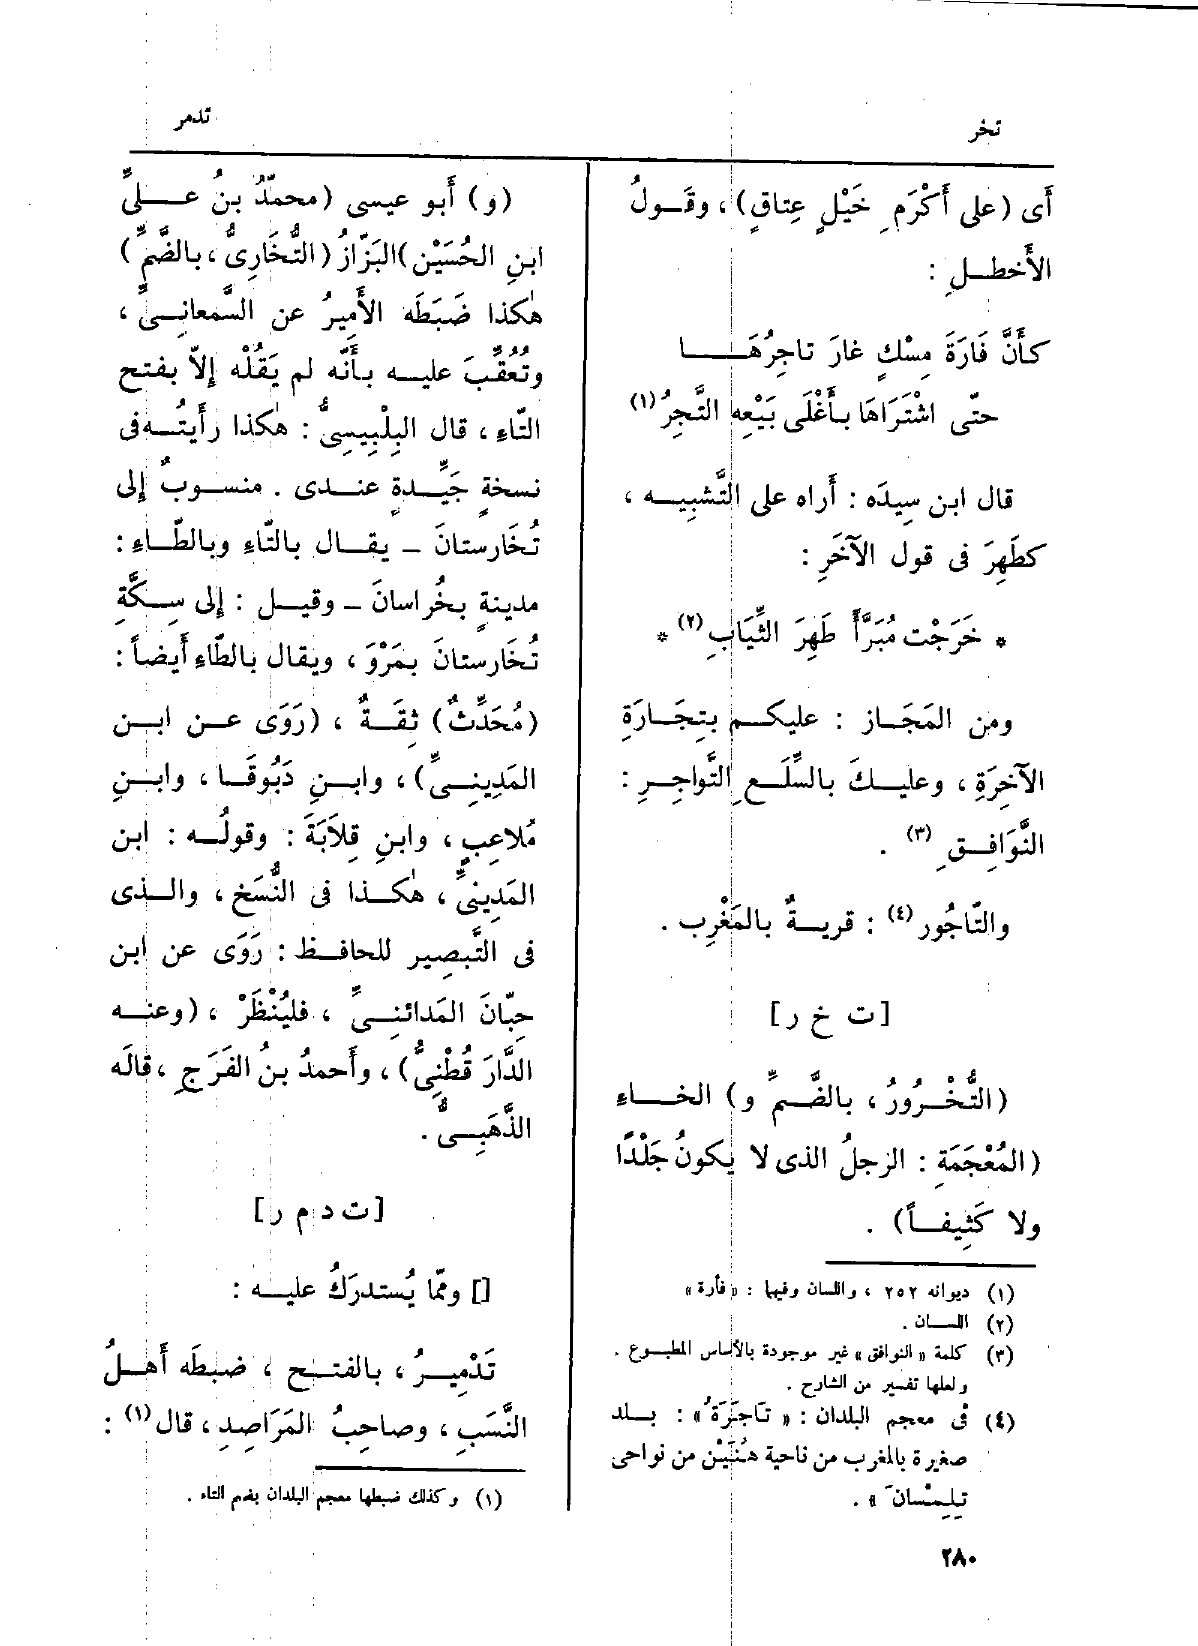 تخر
تدمر
أَى (على أَكْرَمِ خَيْلٍ عِتاقٍ)، وقَـولُ
الأَخطـلِ :
كأَنَّ فَارَةَ مِسْكٍ غارَ تاجِرُهَـــا
حتّى اشْتَرَاهَا بـأَغْلَى بَيْعِه التَّجِرُ (١)
قال ابن سِيدَه : أَراه على التَّشبِيـه ،
كطَهِرَ فى قول الآخَرِ :
* خَرَجْت مُبَرَّأً طَهِرَ الثِّيَابِ (٢) *
ومن المَجَاز : عليكـم بتِجَـارَةِ
الآخِرَةِ ، وعليـكَ بالسِّلَـعِ التَّواجِـرِ :
النَّوَافِـقِ (٣) .
والتّاجُور (٤) : قريـةٌ بالمَغْرِب .
[ ت خ ر ]
(التُّخْـرُورُ ، بالضَّـمِّ و) الخـــاءِ
(المُعْجَمَةِ : الرجلُ الذى لا يكونُ جَلْدًا
ولا كَثِيفـاً) .
(١) ديوانه ٢٥٢ ، واللسان وفيها : « فأرة »
(٢) اللسان .
(٣) كلمة « النوافق » غير موجودة بالأساس المطبوع .
ولعلها تفسير من الشارح .
(٤) فى معجم البلدان : « تَاجَرَةُ » : بلد
صغيرة بالمغرب من ناحية هُنَيْن من نواحى
تِلِمْسان » .
(و) أَبو عيسى (محمّدُ بنُ علـىِّ
ابنِ الحُسَيْن) البَزّازُ (التُّخَارِىُّ ، بالضَّمِّ)
هٰكذا ضَبَطَه الأَمِيرُ عن السَّمعانِـىِّ ،
وتُعُقِّبَ عليـه بـأَنَّه لم يَقُلْه إِلاّ بفتح
التّاءِ ، قال البِلْبِيسِىُّ : هٰكذا رأَيتُـه فى
نسخةٍ جَيِّـدةٍ عنـدى . منسـوبٌ إِلى
تُخَارستانَ ــ يقـال بالتّاءِ وبالطّـاءِ :
مدينةٍ بخُراسانَ ــ وقيـل : إِلى سِـكَّةِ
تُخارستانَ بمَرْوَ ، ويقال بالطّاءِ أَيضاً :
(مُحَدِّثٌ) ثِقَـةٌ ، (رَوَى عـن ابـن
المَدِينِـىِّ) ، وابـنِ دَبُوقَـا ، وابـنِ
مُلاعِبٍ ، وابنِ قِلاَبَةَ : وقولُـه : ابن
المَدِينىِّ ، هٰكـذا فى النُّسَخِ ، والـذى
فى التَّبصِير للحافـظ : رَوَى عن ابن
حِبّانَ المَدائنـىِّ ، فليُنْظَرْ ، (وعنـه
الدَّارَ قُطْنِىُّ) ، وأَحمدُ بنُ الفَرَجِ ، قالَه
الذَّهَبِـىُّ .
[ ت د م ر ]
[] وممّا يُستدرَكُ عليـه :
تَدْمِيـرُ ، بالفتـح ، ضبطَه أَهـلُ
النَّسَبِ ، وصاحِبُ المَرَاصِدِ ، قال (١) :
(١) وكذلك ضبطها معجم البلدان بضم التاء .
٢٨٠